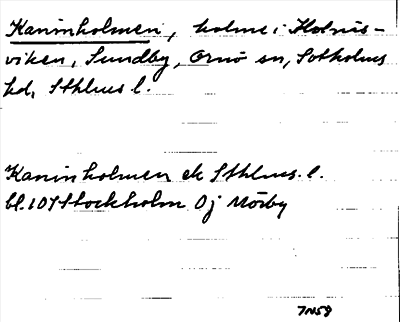 Kaninholmen, holme i Kolnäs-
viken, Sundby, Ornö sn, Sotholms
hd, Sthlms l.
Kaninholmen ek Sthlms. l.
bl.107 Stockholm Oj Mörby
7N58